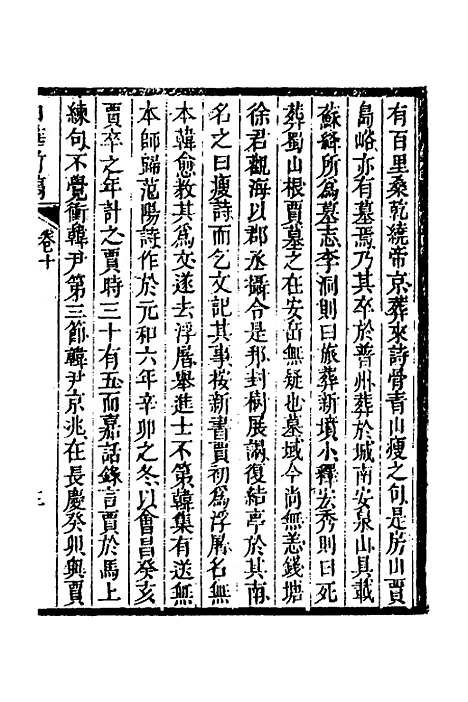 有百里桑乾繞帝京葬來詩骨青山瘦之句是房山賈
島峪亦有墓焉乃其卒於普州葬於城南安泉山具載
蘇絳所爲墓志李洞則曰旅葬新墳小釋安秀則曰死
葬蜀山根賈墓之在安岳無疑也墓域今尚無恙錢塘
徐君觀海以郡丞攝令是邦封樹展謁復結亭於其南
名之曰瘦詩而乞文記其事按新書賈初爲浮屠名無
本韓愈教其爲文遂去浮屠舉進士不第韓集有送無
本師歸范陽詩作於元和六年辛卯之冬以會昌癸亥
賈卒之年計之賈時三十有五而嘉話錄言賈於馬上
練句不覺衝韓尹第三節韓尹京兆在長慶癸卯與賈
卷十
三